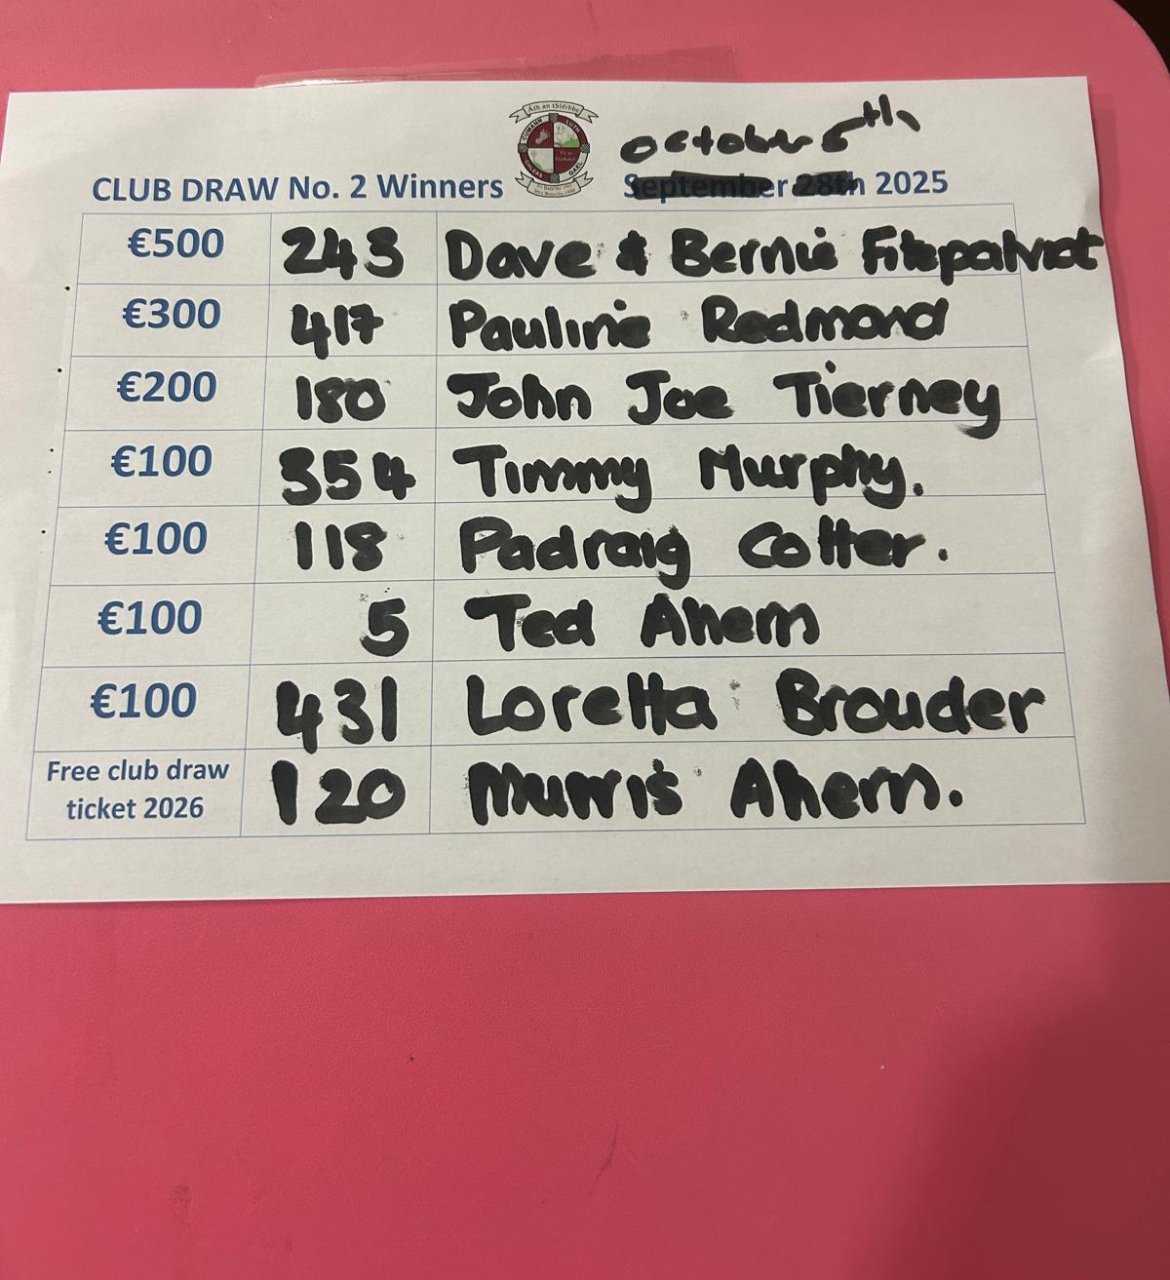 Ath an tSléibhe
October 5th
CLUB DRAW No. 2 Winners September 28th 2025
€500 243 Dave & Bernie Fitzpatrick
€300 417 Pauline Redmond
€200 180 John Joe Tierney
€100 354 Timmy Murphy.
€100 118 Padraig Cotter.
€100 5 Ted Ahern
€100 431 Loretta Brouder
Free club draw
ticket 2026 120 Ahern.